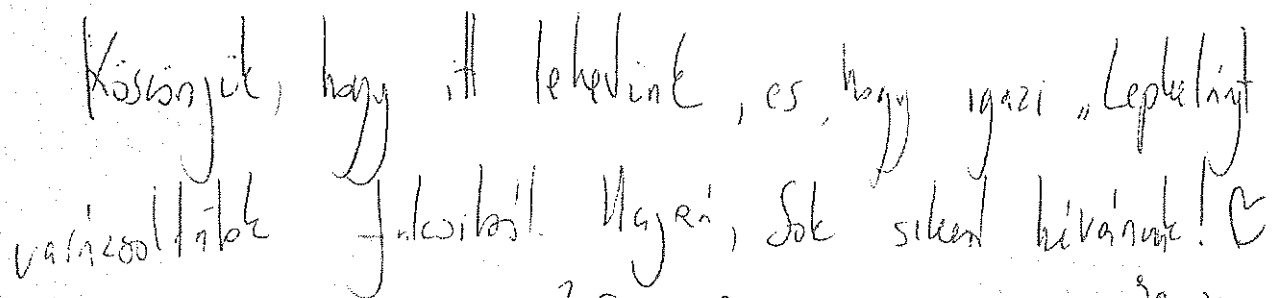 Köszönjük, hogy itt lehetünk, és hogy igazi „Lepkelányt
varázsoltatok Julcsiból. Hajrá, Sok sikert kívánunk! ♡